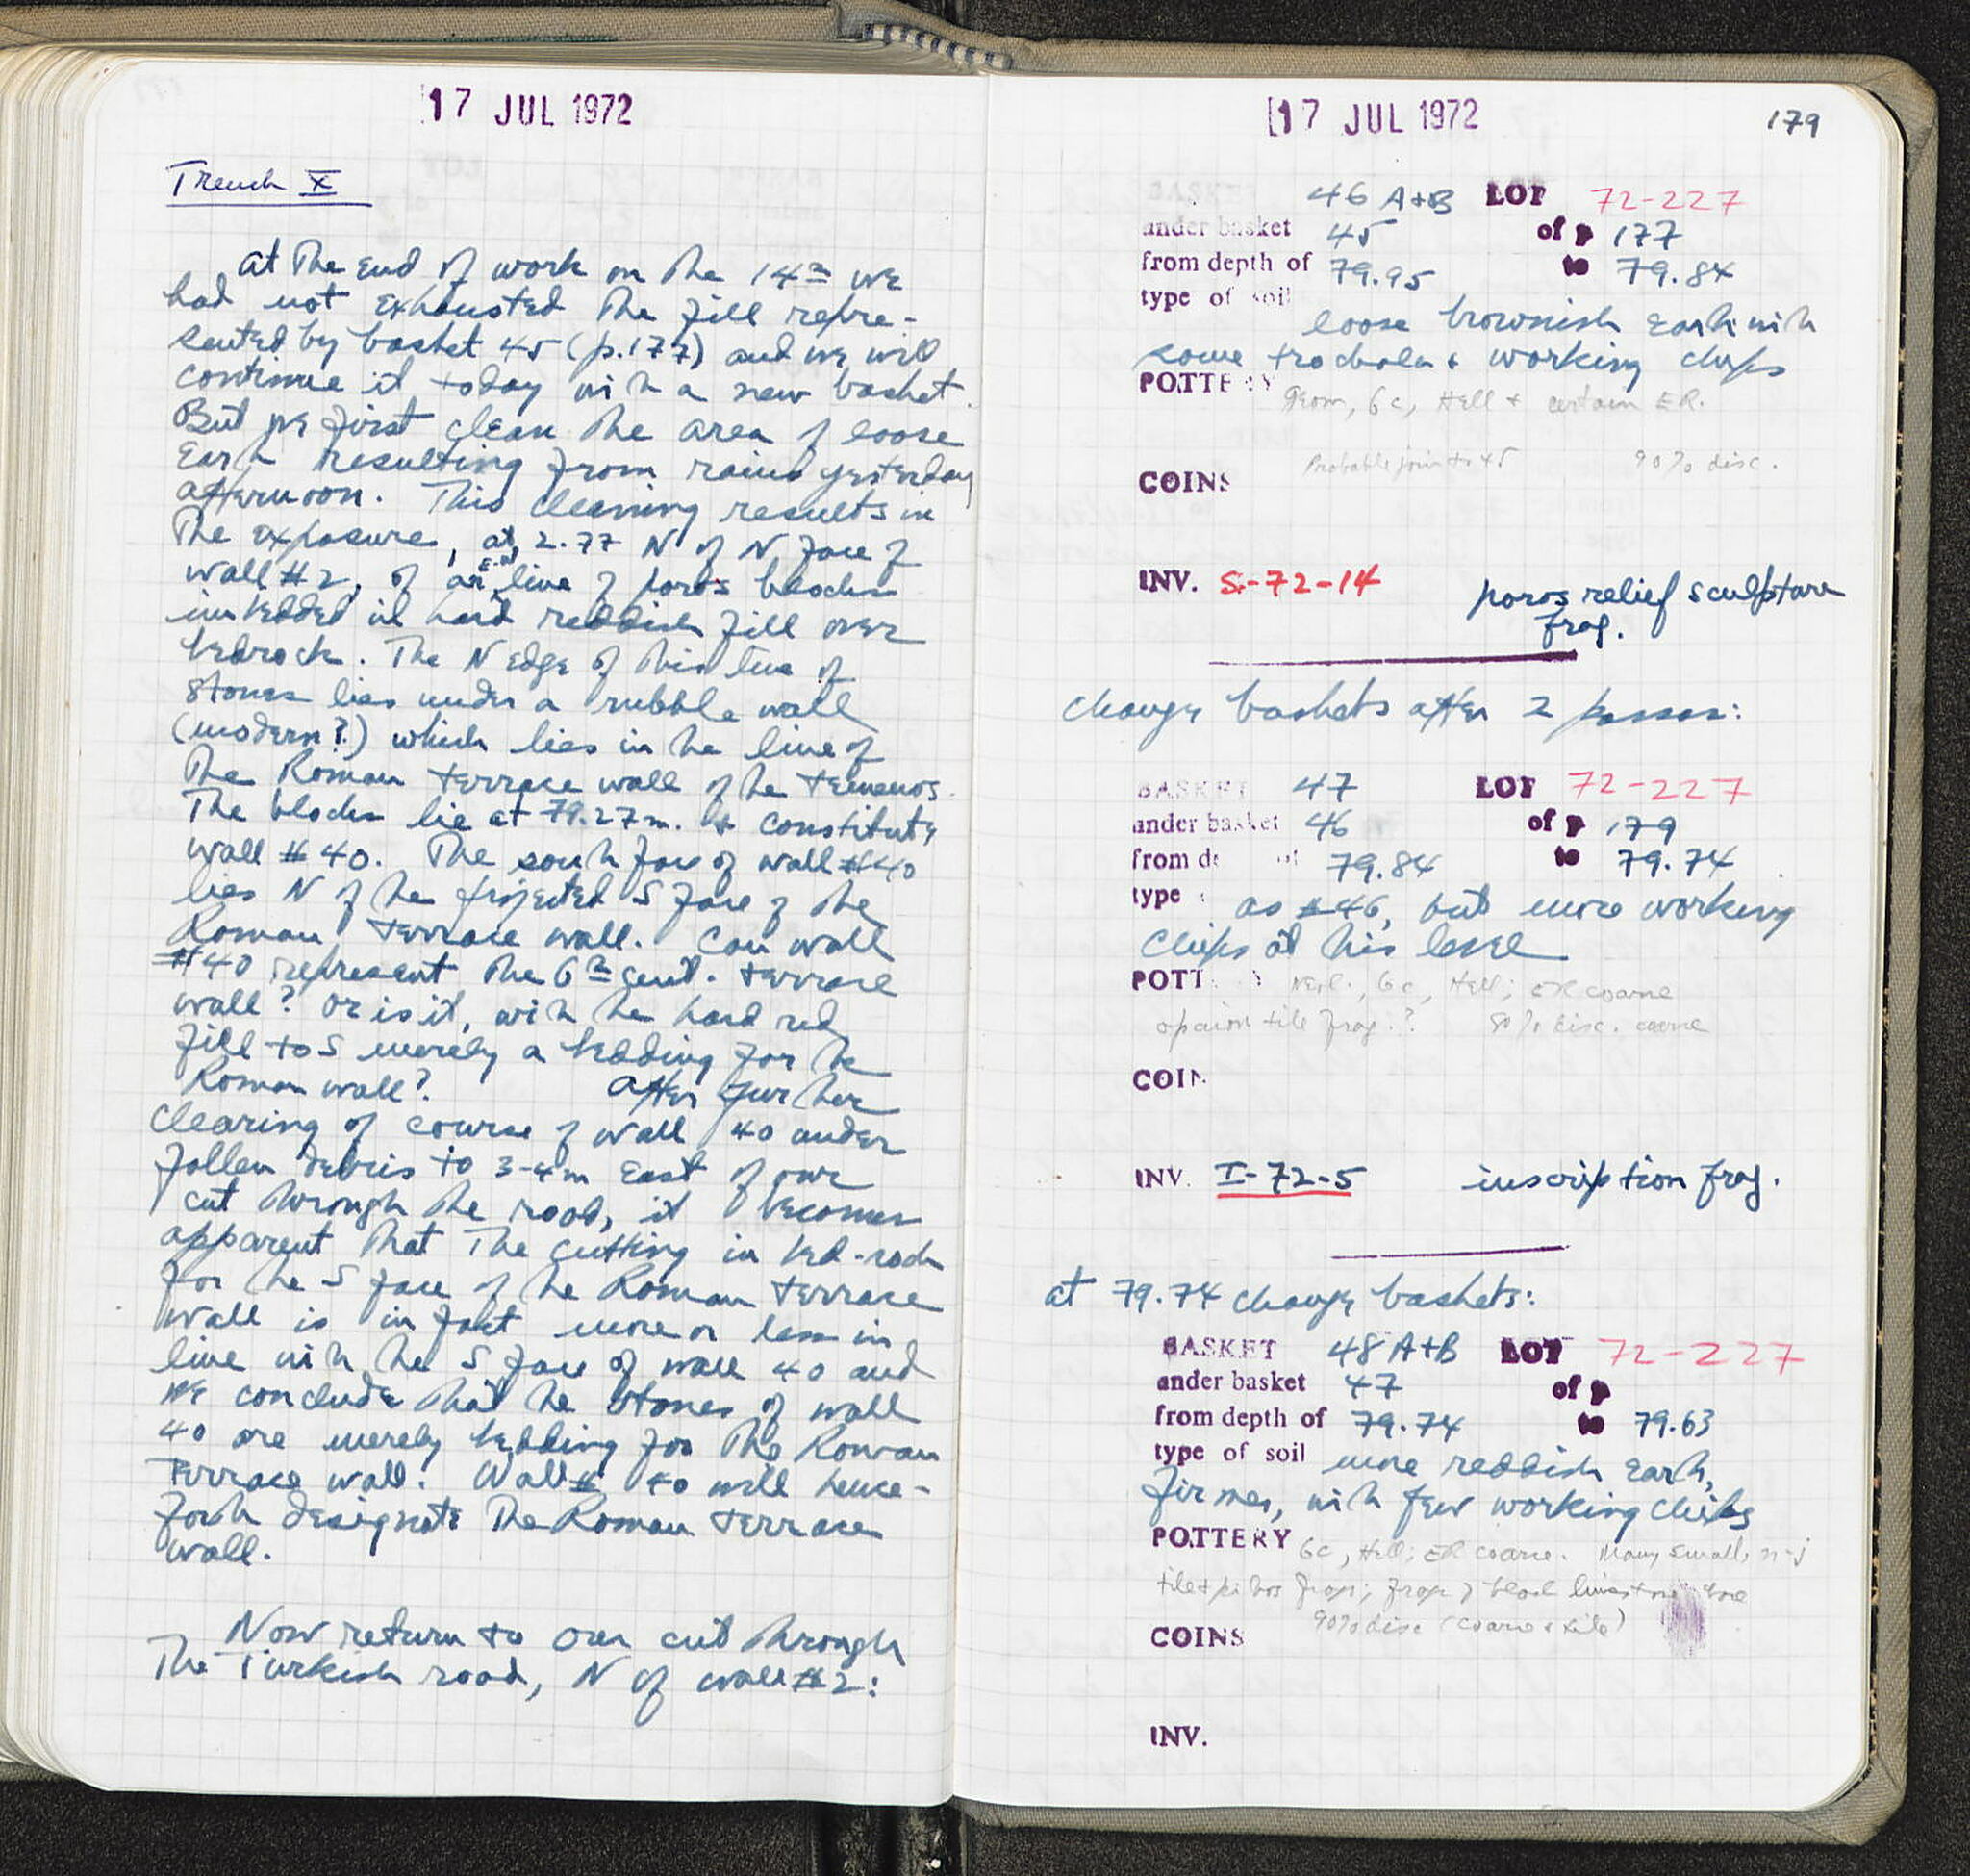 17 JUL 1972
Trench X
At the end of work on the 14th we
had not exhausted the fill repre-
sented by basket 45 (p.177) and we will
continue it today with a new basket.
But we first clean the area of loose
earth resulting from rains yesterday
afternoon. This cleaning results in
the exposure, at 2.77 N of N face of
wall #2, of an E-W line of poros blocks
imbedded in hard reddish fill over
bedrock. The N edge of this line of
stones lies under a rubble wall
(modern?) which lies in the line of
the Roman terrace wall of the temenos.
The blocks lie at 79.27m. & constitute
wall #40. The south face of wall #40
lies N of the projected S face of the
Roman terrace wall. Can wall
#40 represent the 6th cent. terrace
wall? Or is it, with the hard red
fill to S merely a bedding for the
Roman wall? After further
clearing of course of wall 40 under
fallen debris to 3-4m East of our
cut through the road, it becomes
apparent that the cutting in bed-rock
for the S face of the Roman terrace
wall is in fact more or less in
line with the S face of wall 40 and
we conclude that the stones of wall
40 are merely bedding for the Roman
Terrace wall. Wall # 40 will hence-
forth designate the Roman terrace
wall.
Now return to our cut through
the Turkish road, N of wall #2:
17 JUL 1972
179
46 A+B LOT 72-227
under basket 45 of p 177
from depth of 79.95 to 79.84
type of soil
loose brownish earth with
some trochala & working chips
POTTERY Geom, 6c, Hell + certain ER.
Probable join to 45 90% disc.
COINS
INV. S-72-14 poros relief sculpture
frag.
change baskets after 2 passes:
BASKET 47 LOT 72-227
under basket 46 of p 179
from de of 79.84 to 79.74
type as #46, but more working
chips at this level
POTT Neol., 6c, Hell; ER coarse
opaion tile frag.? 80% disc. coarse
COIN
INV. I-72-5 inscription frag.
at 79.74 change baskets:
BASKET 48 A+B LOT 72-227
under basket 47 of p
from depth of 79.74 to 79.63
type of soil more reddish earth,
firmer, with few working chips
POTTERY 6c, Hell; ER coarse. Many small
tile & pithos frags; frag of black limestone
COINS 90% disc (coarse & tile)
INV.